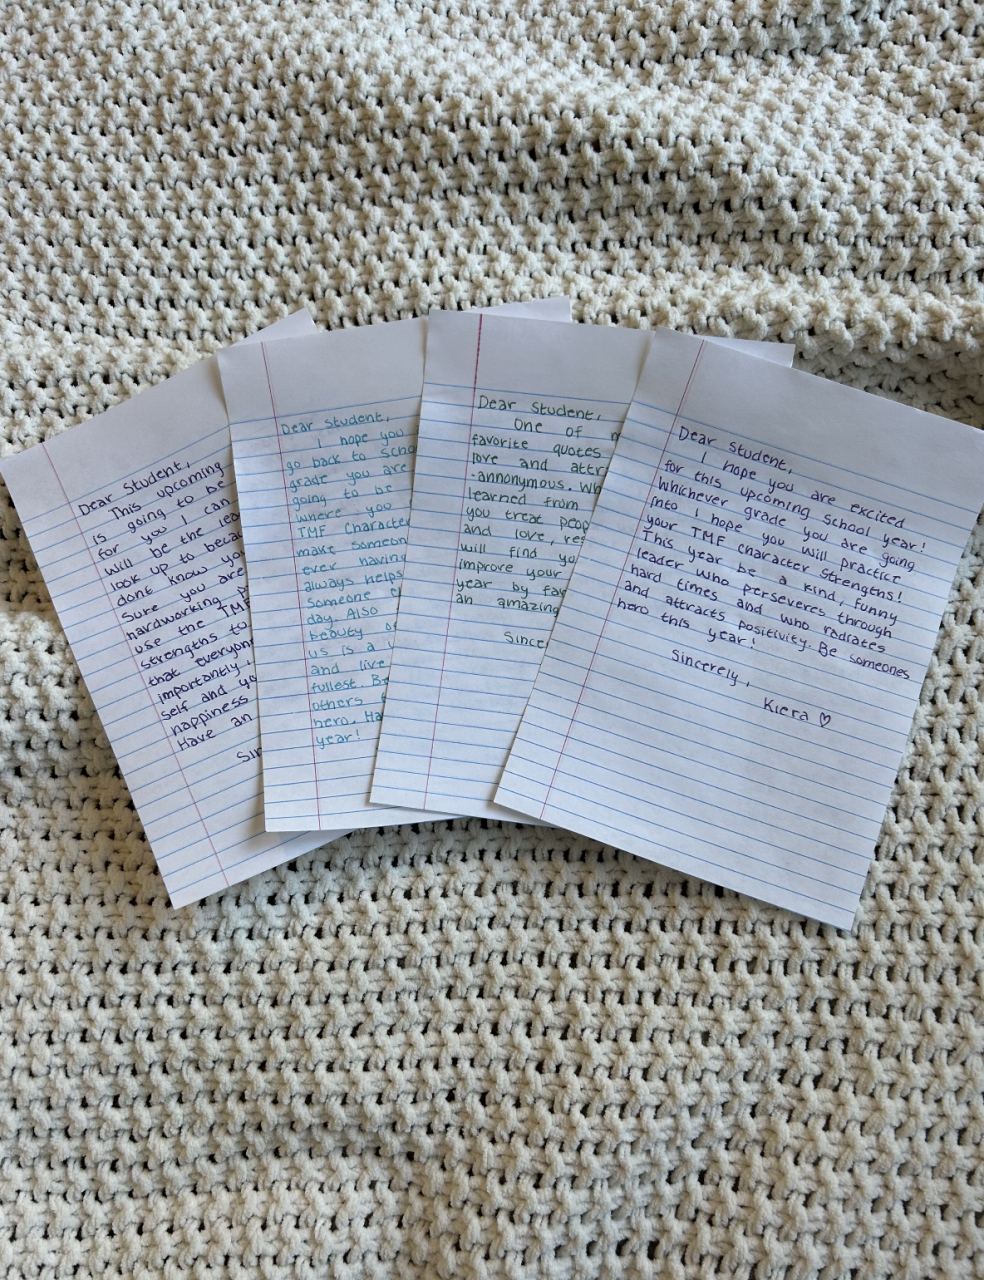 Dear Student,
This upcoming
is going to be
for you I can
will be the lea
look up to becau
dont know you
sure you are
hardworking p
use the TMF
strengths to
that everyon
importantly,
self and yo
happiness
Have an
Sin
Dear Student,
I hope you
go back to Scho
grade you are
going to be
where you
TMF Character
make someon
ever having
always helps
someone
day. Also
beauty of
us is a
and live
fullest. Be
others
hero. Ha
year!
Dear Student,
One of m
favorite quotes
love and attr
-annonymous. Wh
learned from
you treat peop
and love, res
will find yo
improve your
year by far
an amazing
Since
Dear Student,
I hope you are excited
for this upcoming school year!
Whichever grade you are going
into I hope you will practice
your TMF Character Strengtens!
This year be a kind, funny
leader who perseveres through
hard times and who radiates
and attracts positivity. Be someones
hero this year!
Sincerely,
Kiera ♡